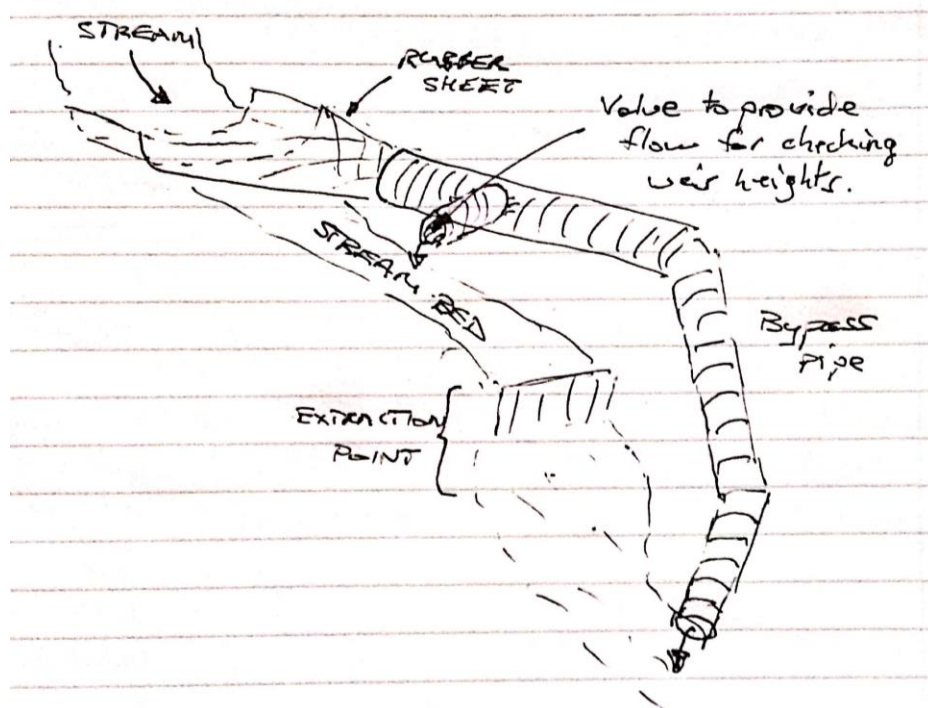 STREAM
RUBBER
SHEET
Valve to provide
flow for checking
weir heights.
STREAM BED
Bypass
Pipe
EXTRACTION
POINT